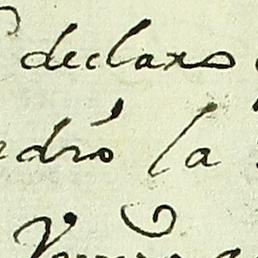 declaro
edró la